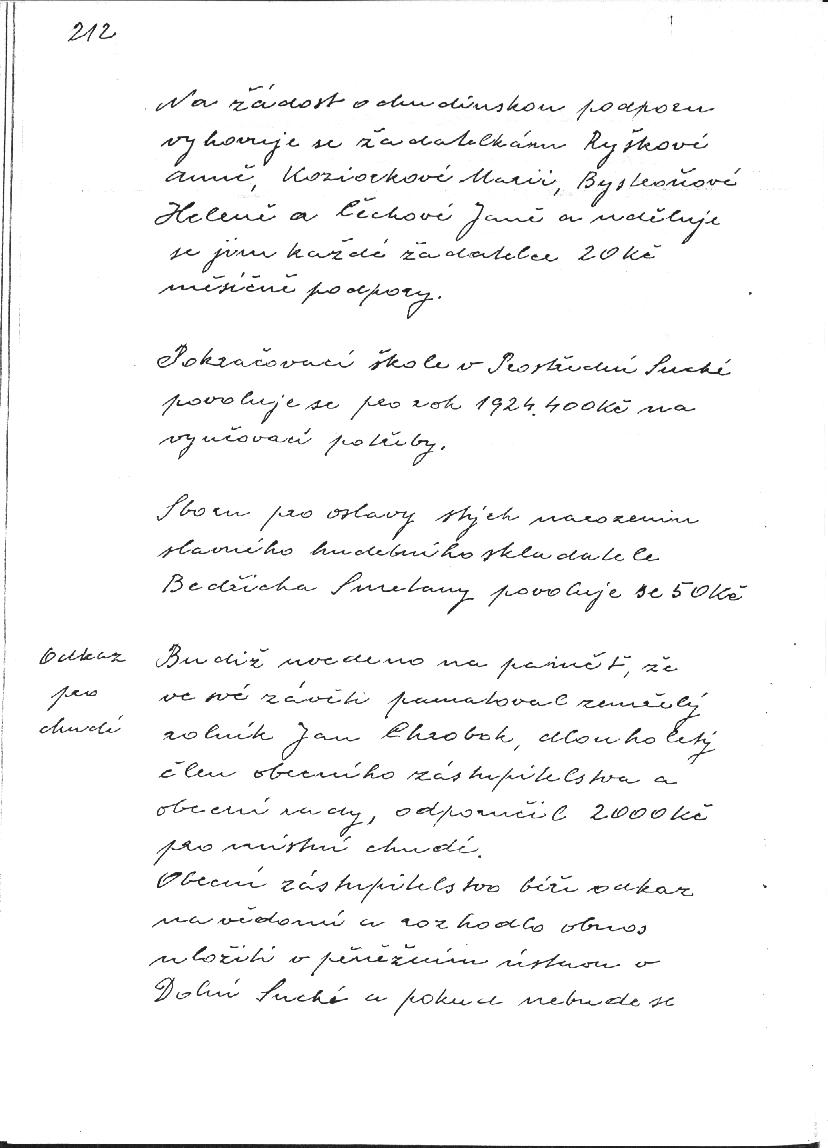 212
Na žádost o chudinskou podporu
vyhovuje se žadatelkám Ryškové
Anně, Koziorkové Marii, Bystroňové
Heleně a Čechové Janě a uděluje
se jim každé žadatelce 20 Kč
měsíčně podpory.
Pokračovací škole v Prostřední Suché
povoluje se pro rok 1924. 400 Kč na
vyučovací potřeby.
Sboru pro oslavy stých narozenin
slavného hudebního skladatele
Bedřicha Smetany povoluje se 50 Kč
Odkaz
pro
chudé
Budiž uvedeno na paměť, že
ve své závěti pamatoval zemřelý
rolník Jan Chrobok, dlouholetý
člen obecního zástupitelstva a
obecní rady, odporučil 2000 Kč
pro místní chudé.
Obecní zástupitelstvo béře odkaz
na vědomí a rozhodlo obnos
uložiti v peněžním ústavu v
Dolní Suché a pokud nebude se